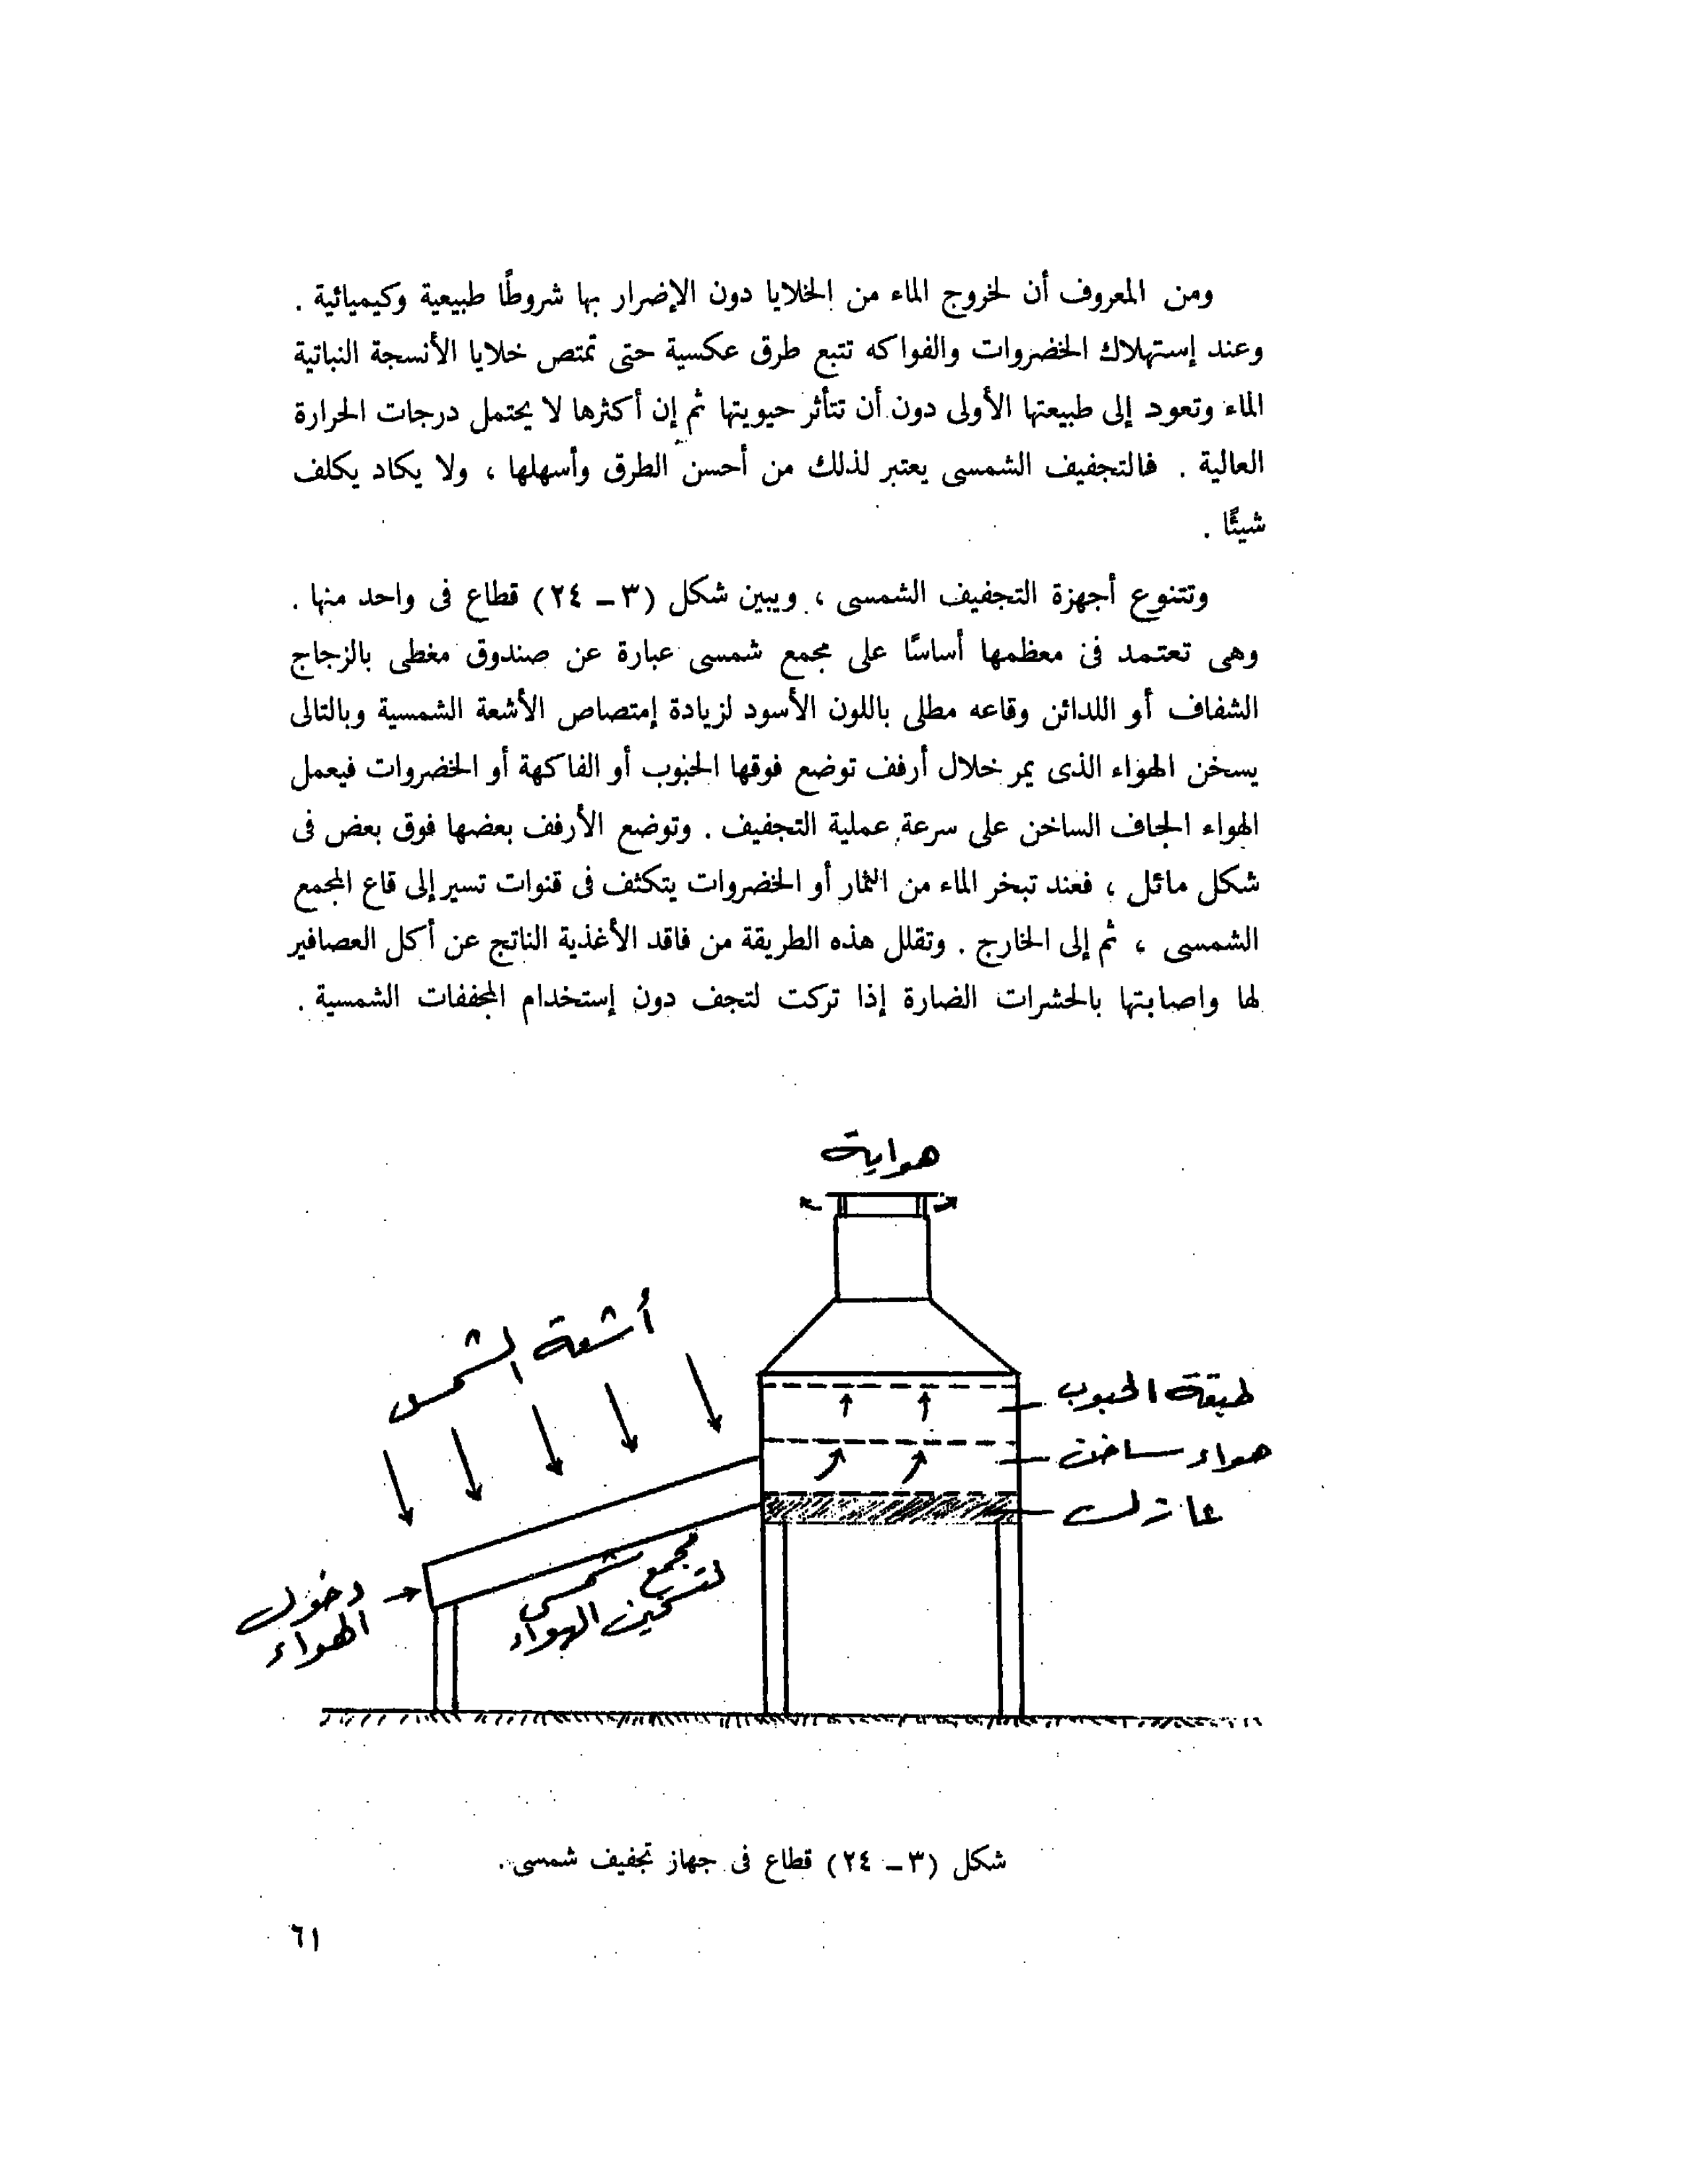 ومن المعروف أن لخروج الماء من الخلايا دون الإضرار بها شروطًا طبيعية وكيميائية .
وعند إستهلاك الخضروات والفواكه تتبع طرق عكسية حتى تمتص خلايا الأنسجة النباتية
الماء وتعود إلى طبيعتها الأولى دون أن تتأثر حيويتها ثم إن أكثرها لا يحتمل درجات الحرارة
العالية . فالتجفيف الشمسى يعتبر لذلك من أحسن الطرق وأسهلها ، ولا يكاد يكلف
شيئًا .
وتتنوع أجهزة التجفيف الشمسى ، ويبين شكل (٣ – ٢٤) قطاع فى واحد منها .
وهى تعتمد فى معظمها أساسًا على مجمع شمسى عبارة عن صندوق مغطى بالزجاج
الشفاف أو اللدائن وقاعه مطلى باللون الأسود لزيادة إمتصاص الأشعة الشمسية وبالتالى
يسخن الهواء الذى يمر خلال أرفف توضع فوقها الحبوب أو الفاكهة أو الخضروات فيعمل
الهواء الجاف الساخن على سرعة عملية التجفيف . وتوضع الأرفف بعضها فوق بعض فى
شكل مائل ، فعند تبخر الماء من الثمار أو الخضروات يتكثف فى قنوات تسير إلى قاع المجمع
الشمسى ، ثم إلى الخارج . وتقلل هذه الطريقة من فاقد الأغذية الناتج عن أكل العصافير
لها واصابتها بالحشرات الضارة إذا تركت لتجف دون إستخدام المجففات الشمسية .
هواية
أشعة الشمس
طبقة الحبوب
هواء ساخن
عازل
مجمع شمسى
لتسخين الهواء
دخول
الهواء
شكل (٣ – ٢٤) قطاع فى جهاز تجفيف شمسى .
٦١